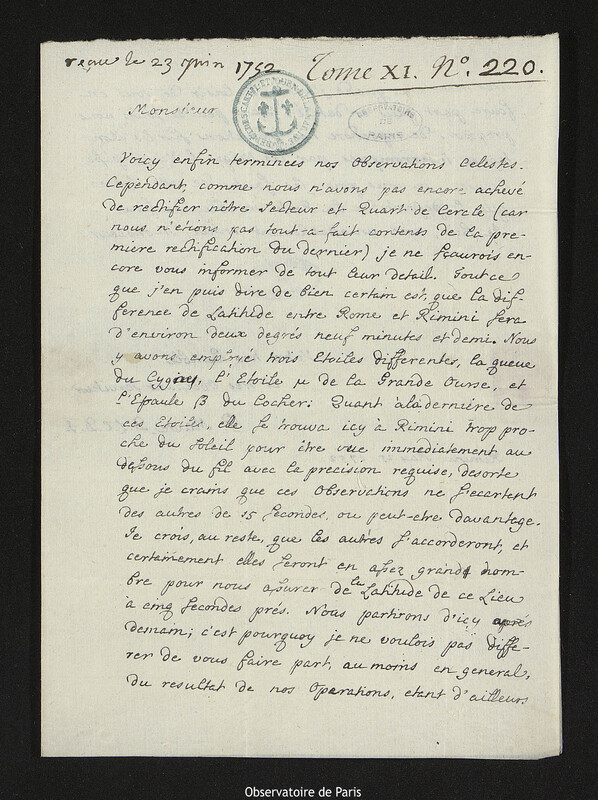 reçu le 23 Juin 1752 Tome XI. N.º 220.
Monsieur
Voicy enfin terminées nos Observations Celestes.
Cependant, comme nous n'avons pas encore achevé
de rectifier nôtre Secteur et Quart de Cercle (car
nous n'etions pas tout-a-fait contents de la pre-
miere rectification du dernier) je ne sçaurois en-
core vous informer de tout leur detail. Tout ce
que j'en puis dire de bien certain est, que la dif-
ference de Latitude entre Rome et Rimini sera
d'environ deux degrés neuf minutes et demi. Nous
y avons employé trois Etoiles differentes, la queue
du Cygne, l'Etoile μ de la Grande Ourse, et
l'Epaule β du Cocher: Quant à la derniere de
ces Etoiles, elle se trouva icy à Rimini trop pro-
che du Soleil pour être vue immediatement au
dessous du fil avec la precision requise, desorte
que je crains que ces Observations ne s'ecartent
des autres de 15 secondes, ou peut-etre davantage.
Je crois, au reste, que les autres s'accorderont, et
certainement elles seront en assez grand nom-
bre pour nous assurer de la Latitude de ce Lieu
à cinq secondes prés. Nous partirons d'icy après
demain; c'est pourquoy je ne voulois pas diffe-
rer de vous faire part, au moins en general,
du resultat de nos Operations, etant d'ailleurs
Observatoire de Paris